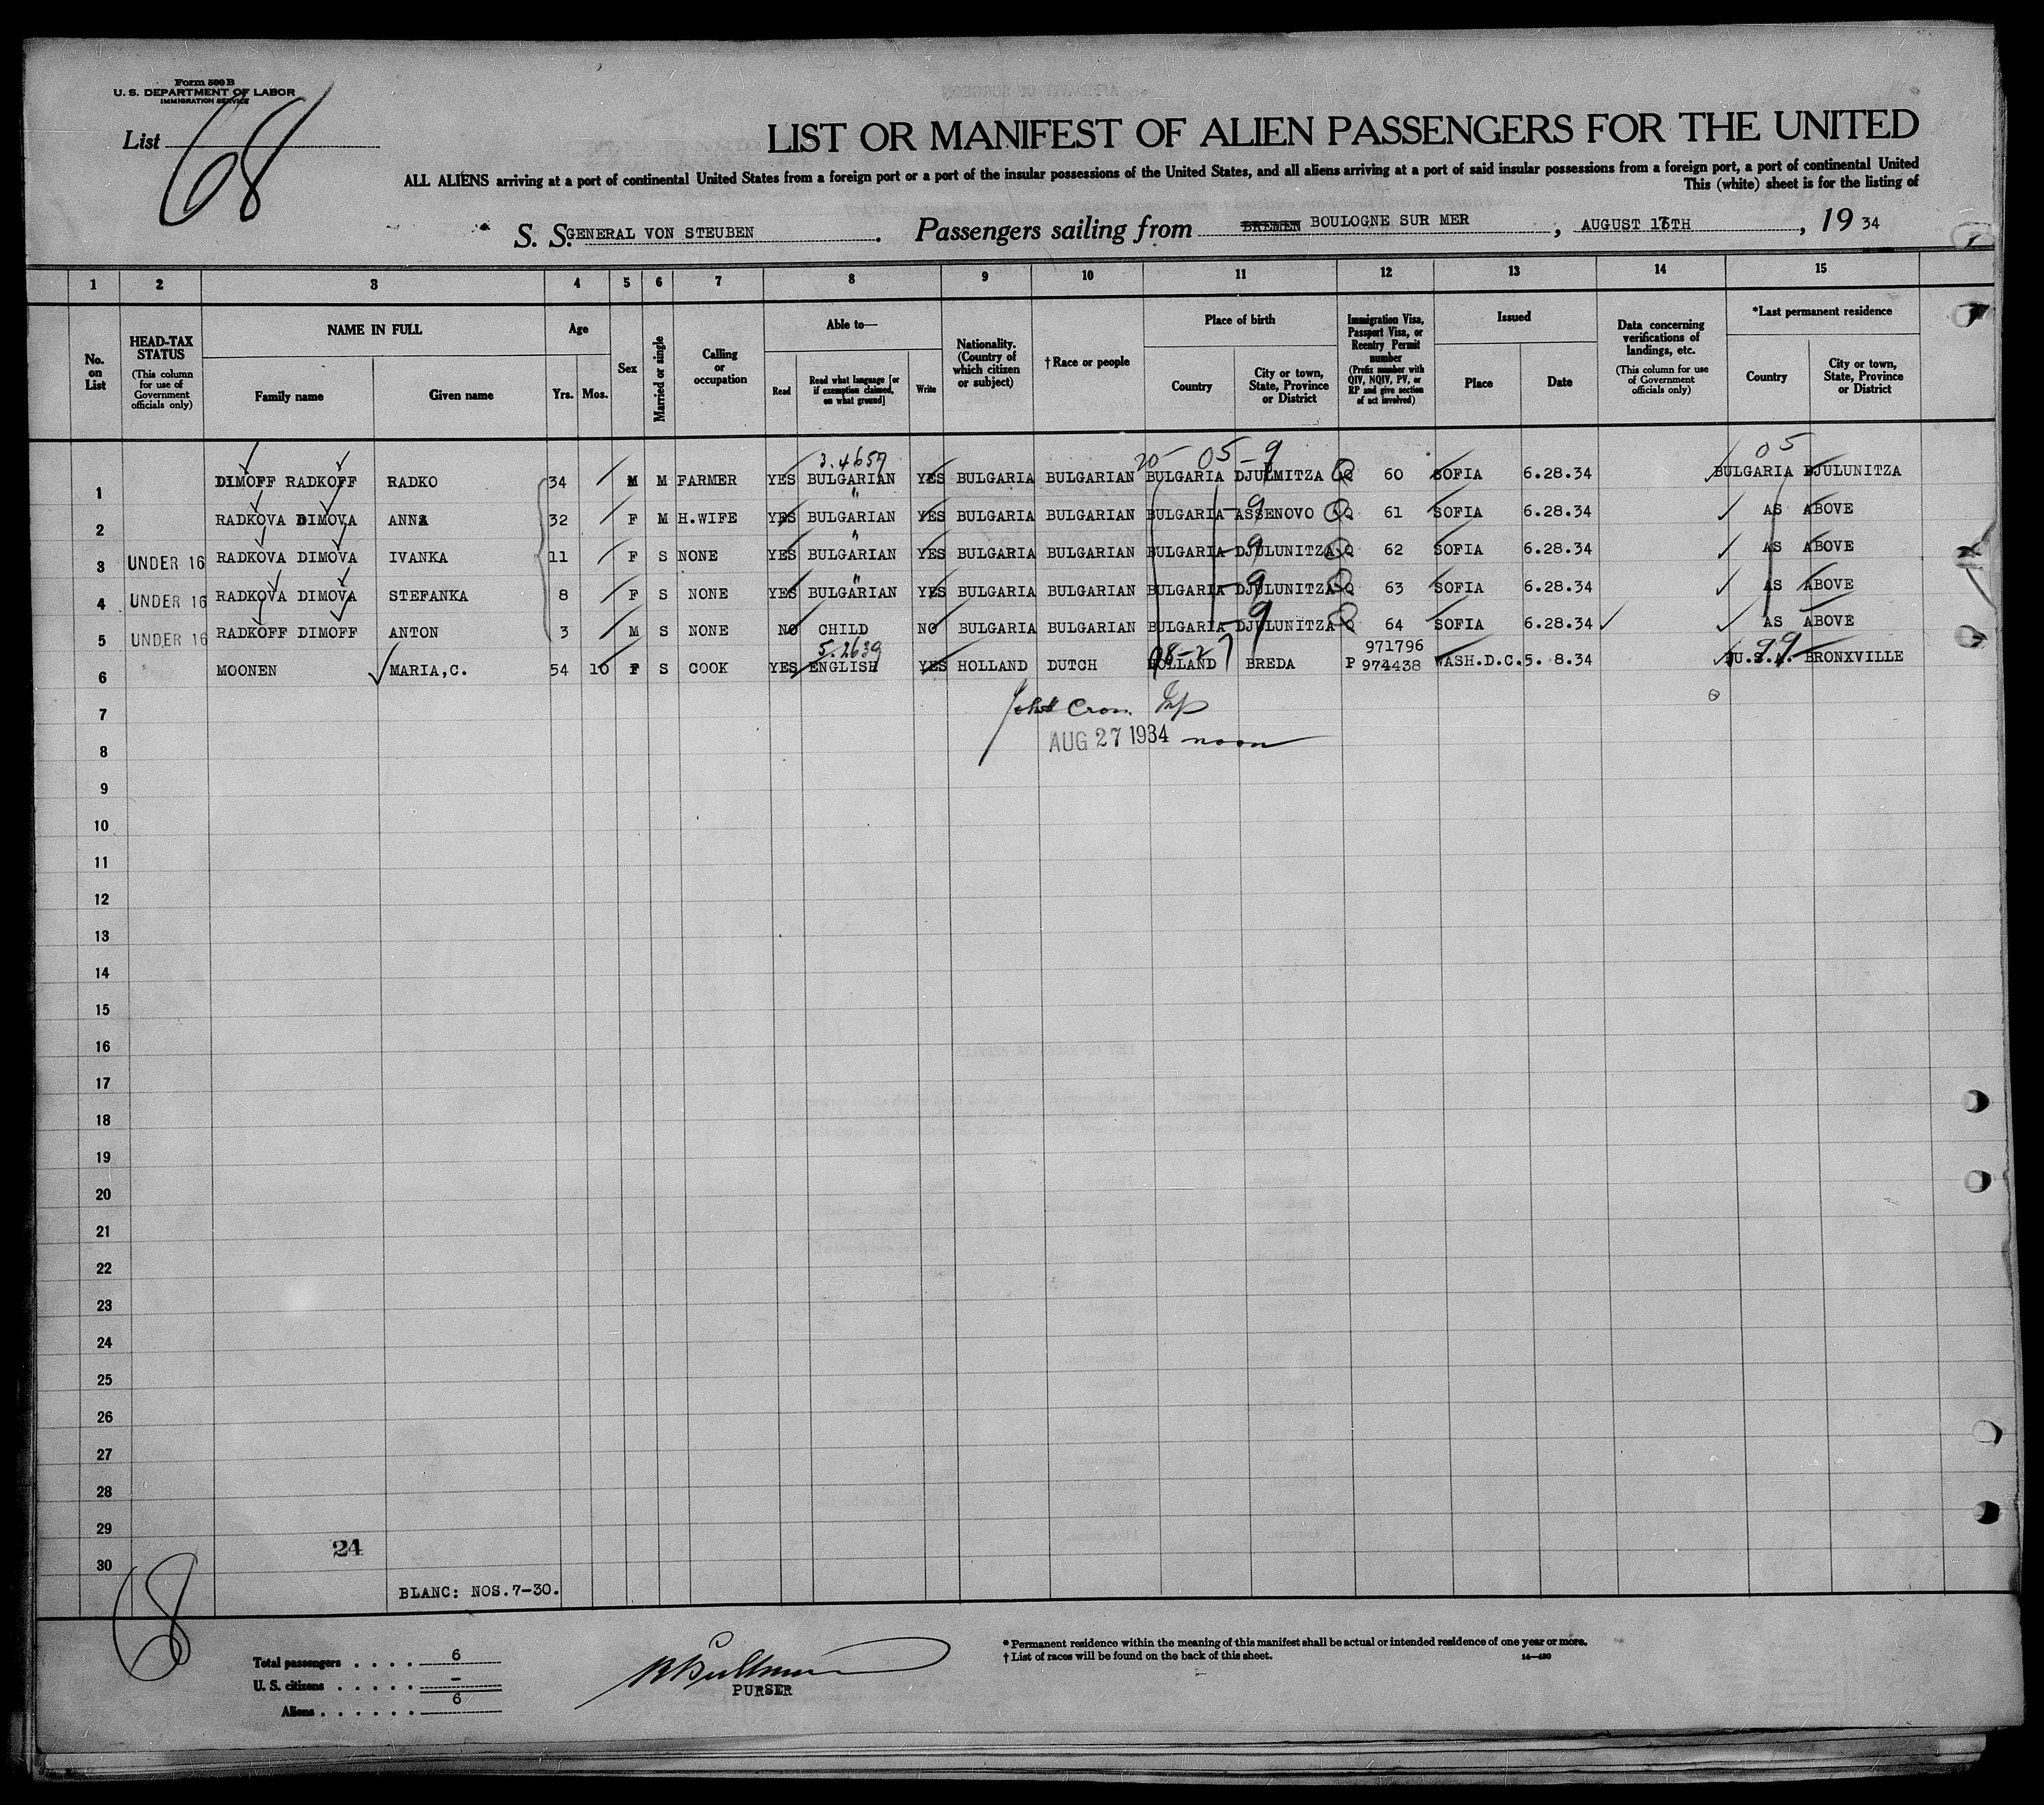 Form 500 B
U. S. DEPARTMENT OF LABOR
IMMIGRATION SERVICE
List 68
LIST OR MANIFEST OF ALIEN PASSENGERS FOR THE UNITED
ALL ALIENS arriving at a port of continental United States from a foreign port or a port of the insular possessions of the United States, and all aliens arriving at a port of said insular possessions from a foreign port, a port of continental United
This (white) sheet is for the listing of
S. S. GENERAL VON STEUBEN. Passengers sailing from BREMEN BOULOGNE SUR MER, AUGUST 17TH, 19 34
1 2 3 4 5 6 7 8 9 10 11 12 13 14 15
No. on List
HEAD-TAX STATUS (This column for use of Government officials only)
NAME IN FULL
Family name Given name
Age
Yrs. Mos.
Sex
Married or single
Calling or occupation
Able to—
Read Read what language [or if exemption claimed, on what ground] Write
Nationality. (Country of which citizen or subject)
† Race or people
Place of birth
Country City or town, State, Province or District
Immigration Visa, Passport Visa, or Reentry Permit number (Prefix number with QIV, NQIV, PV, or RP and give section of act involved)
Issued
Place Date
Data concerning verifications of landings, etc. (This column for use of Government officials only)
*Last permanent residence
Country City or town, State, Province or District
3.4657 20- 05-9 05
1 DIMOFF RADKOFF RADKO 34 M M FARMER YES BULGARIAN YES BULGARIA BULGARIAN BULGARIA DJULMITZA Q 60 SOFIA 6.28.34 BULGARIA DJULUNITZA
2 RADKOVA DIMOVA ANNA 32 F M H.WIFE YES " BULGARIAN YES BULGARIA BULGARIAN BULGARIA-ASSENOVO 9 Q 61 SOFIA 6.28.34 AS ABOVE
3 UNDER 16 RADKOVA DIMOVA IVANKA 11 F S NONE YES " BULGARIAN YES BULGARIA BULGARIAN BULGARIA-DJULUNITZA 9 Q 62 SOFIA 6.28.34 AS ABOVE
4 UNDER 16 RADKOVA DIMOVA STEFANKA 8 F S NONE YES " BULGARIAN YES BULGARIA BULGARIAN BULGARIA-DJULUNITZA 9 Q 63 SOFIA 6.28.34 AS ABOVE
5 UNDER 16 RADKOFF DIMOFF ANTON 3 M S NONE NO CHILD NO BULGARIA BULGARIAN BULGARIA-DJULUNITZA 9 Q 64 SOFIA 6.28.34 AS ABOVE
5.2639 08-27 971796 99
6 MOONEN MARIA,C. 54 10 F S COOK YES ENGLISH YES HOLLAND DUTCH HOLLAND BREDA P 974438 WASH.D.C. 5. 8.34 U.S.A. BRONXVILLE
7
8 AUG 27 1934 noon
9
10
11
12
13
14
15
16
17
18
19
20
21
22
23
24
25
26
27
28
29
24
30
68
BLANC: NOS.7-30.
Total passengers . . . . 6
U. S. citizens . . . . . –
Aliens . . . . . . 6
PURSER
* Permanent residence within the meaning of this manifest shall be actual or intended residence of one year or more.
† List of races will be found on the back of this sheet.
14—480